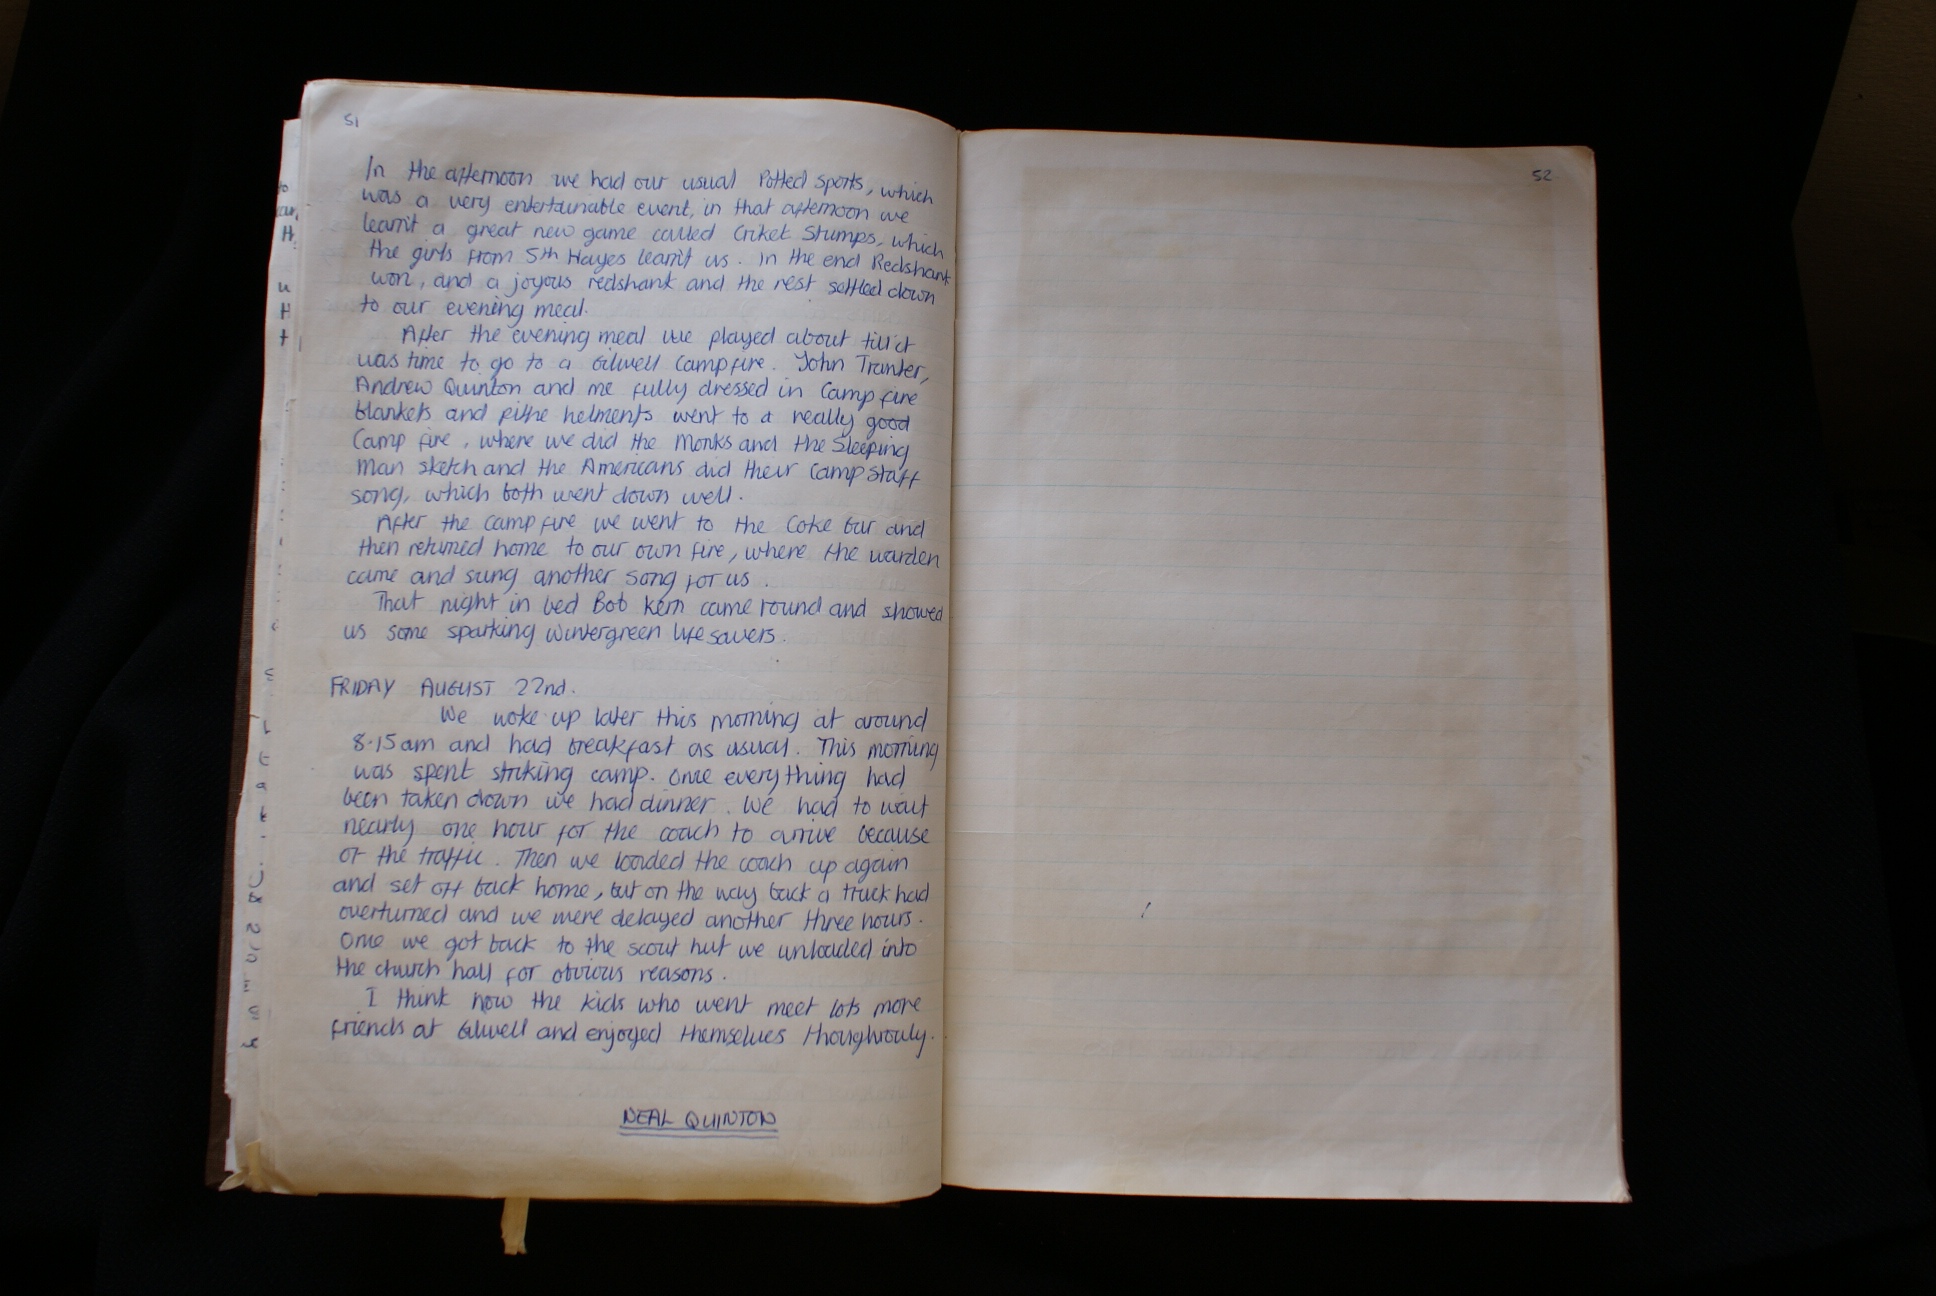 51
In the afternoon we had our usual Potted sports, which
was a very entertainable event, in that afternoon we
learnt a great new game called Criket Stumps, which
the girls from 5th Hayes learnt us. In the end Redshank
won, and a joyous redshank and the rest settled down
to our evening meal.
After the evening meal we played about till it
was time to go to a Gilwell Campfire. John Tranter,
Andrew Quinton and me fully dressed in Camp fire
blankets and pithe helments went to a really good
Camp fire, where we did the Monks and the Sleeping
Man sketch and the Americans did their Camp Staff
song, which both went down well.
After the camp fire we went to the Coke bar and
then returned home to our own fire, where the warden
came and sung another song for us.
That night in bed Bob Kern came round and showed
us some sparking wintergreen lifesavers.
FRIDAY AUGUST 22nd.
We woke up later this morning at around
8.15am and had breakfast as usual. This morning
was spent striking camp. Once everything had
been taken down we had dinner. We had to wait
nearly one hour for the coach to arrive because
of the traffic. Then we loaded the coach up again
and set off back home, but on the way back a truck had
overturned and we were delayed another three hours.
Once we got back to the scout hut we unloaded into
the church hall for obvious reasons.
I think now the kids who went meet lots more
friends at Gilwell and enjoyed themselves thoughrouly.
NEAL QUINTON
52